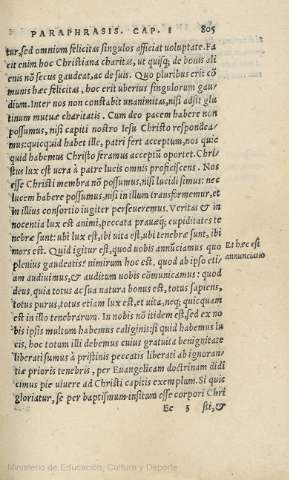 PARAPHRASIS. CAP. I 805
tur, sed omnium felicitas singulos afficiat uoluptate. Fa
cit enim hoc Christiana charitas, ut quisq; de bonis ali
enis nõ secus gaudeat, ac de suis. Quo pluribus erit cõ
munis hæc felicitas, hoc erit uberius singulorum gau/
dium. Inter nos non constabit unanimitas, nisi adsit glu
tinum mutuæ charitatis. Cum deo pacem habere non
possumus, nisi capiti nostro Iesu Christo respondea/
mus: quicquid habet ille, patri fert acceptum, nos quic
quid habemus Christo feramus acceptũ oportet. Chri/
stus lux est uera à patre lucis omnis proficiscens. Nos
esse Christi membra nõ possumus, nisi lucidi simus: nec
lucem habere possumus, nisi in illum transformemur, et
in illius consortio iugiter perseueremus. Veritas & in
nocentia lux est animi, peccata prauæq; cupiditates te
nebræ sunt: ubi lux est, ibi uita est, ubi tenebræ sunt, ibi
mors est. Quid igitur est, quod uobis annũciamus quo
plenius gaudeatis? nimirum hoc est, quod ab ipso eti/
am audiuimus, & auditum uobis cõmunicamus: quod
deus, quia totus ac sua natura bonus est, totus sapiens,
totus purus, totus etiam lux est, et uita, neq; quicquam
est in illo tenebrarum. In nobis nõ itidem est, sed ex no
bis ipsis multum habemus caliginis: si quid habemus lu
cis, hoc totum illi debemus cuius gratuita benignitate
liberati sumus à pristinis peccatis liberati ab ignoran/
tiæ prioris tenebris, per Euangelicam doctrinam didi
cimus pie uiuere ad Christi capitis exemplum. Si quis
gloriatur, se per baptismum insitum esse corpori Chri
Ee 3 sti, &
Et hæc est
annunciatio
Ministerio de Educación, Cultura y Deporte